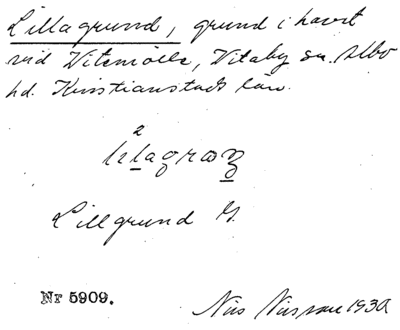 Lillagrund, grund i havet
vid Vitemölle, Vitaby sn. Albo
hd. Kristianstads län.
2
Lillgrund G.
Nr 5909.
Nils Nilsson 1930